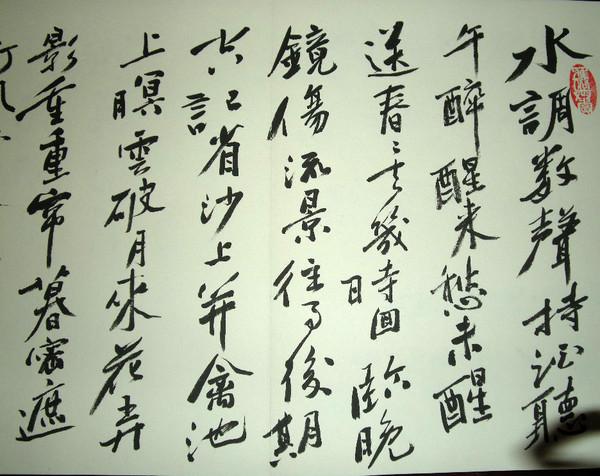 水調数聲持酒聽
午醉醒来愁未醒
送春々去幾時回臨晚
鏡傷流景往事後期
空記省沙上并禽池
上暝雲破月來花弄
影重重帘幕密遮